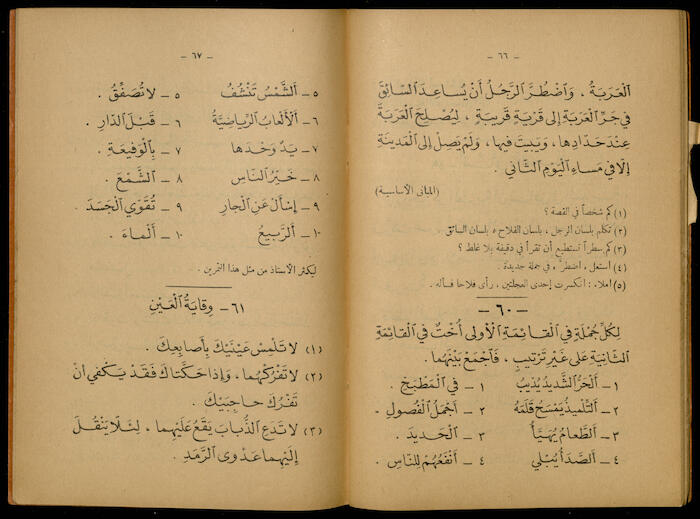 - ٦٦ -
اَلْعَرَبَةُ ، وَاضْطُرَّ الرَّجُلُ أَنْ يُسَاعِدَ السَّائِقَ
فِي جَرِّ الْعَرَبَةِ إِلى قَرْيَةٍ قَرِيبَةٍ ، لِيُصْلِحَ الْعَرَبَةَ
عِنْدَ حَدَّادِهَا، وَيَبِيتَ فِيهَا، وَلَمْ يَصِلْ إِلى الْمَدِينَةِ
إِلَّا فِي مَسَاءِ الْيَوْمِ الثَّانِي .
(المبانى الاساسية)
(١) كم شخصاً في القصة ؟
(٢) تكلم بلسان الرجل ، بلسان الفلاح ، بلسان السائق .
(٣) كم سطراً تستطيع أن تقرأ في دقيقة بلا غلط ؟
(٤) استعمل ، اضطرَّ ، في جملة جديدة .
(٥) املاء : انكسرت إحدى العجلتين ، رأى فلاحا فسأله .
- ٦٠ -
لِكُلِّ جُمْلَةٍ فِي الْقَائِمَةِ الْأُولَى أُخْتٌ فِي الْقَائِمَةِ
الثَّانِيَةِ عَلَى غَيْرِ تَرْتِيبٍ ، فَاجْمَعْ بَيْنَهُمَا .
١ - اَلْحَرُّ الشَّدِيدُ يُذِيبُ ١ - فِي الْمَطْبَخِ .
٢ - اَلتِّلْمِيذُ يَمْسَحُ قَلَمَهُ ٢ - أَجْمَلُ الْفُصُولِ .
٣ - اَلطَّعَامُ يُهَيَّأُ ٣ - اَلْحَدِيدَ .
٤ - اَلصَّدَأُ يُبْلِي ٤ - أَنْفَعُهُمْ لِلنَّاسِ .
- ٦٧ -
٥ - اَلشَّمْسُ تُنَشِّفُ ٥ - لَا تُصَفِّقُ .
٦ - اَلْأَلْعَابُ الرِّيَاضِيَّةُ ٦ - قَبْلَ الدَّارِ .
٧ - يَدٌ وَحْدَهَا ٧ - بِالْوَقِيعَةِ .
٨ - خَيْرُ النَّاسِ ٨ - اَلشَّمْعَ .
٩ - إِسْأَلْ عَنِ الْجَارِ ٩ - تُقَوِّي الْجَسَدَ .
١٠ - اَلرَّبِيعُ ١٠ - اَلْمَاءَ .
ليكثر الأستاذ من مثل هذا التمرين .
٦١ - وِقَايَةُ الْعَيْنِ
(١) لَا تَلْمِسْ عَيْنَيْكَ بِأَصَابِعِكَ .
(٢) لَا تَفْرُكْهُمَا ، وَإِذَا حَكَّتَاكَ فَقَدْ يَكْفِي انْ
تَفْرُكَ حَاجِبَيْكَ .
(٣) لَا تَدَعِ الذُّبَابَ يَقَعُ عَلَيْهِمَا ، لِئَلَّا يَنْقُلَ
إِلَيْهِمَا عَدْوَى الرَّمَدِ .